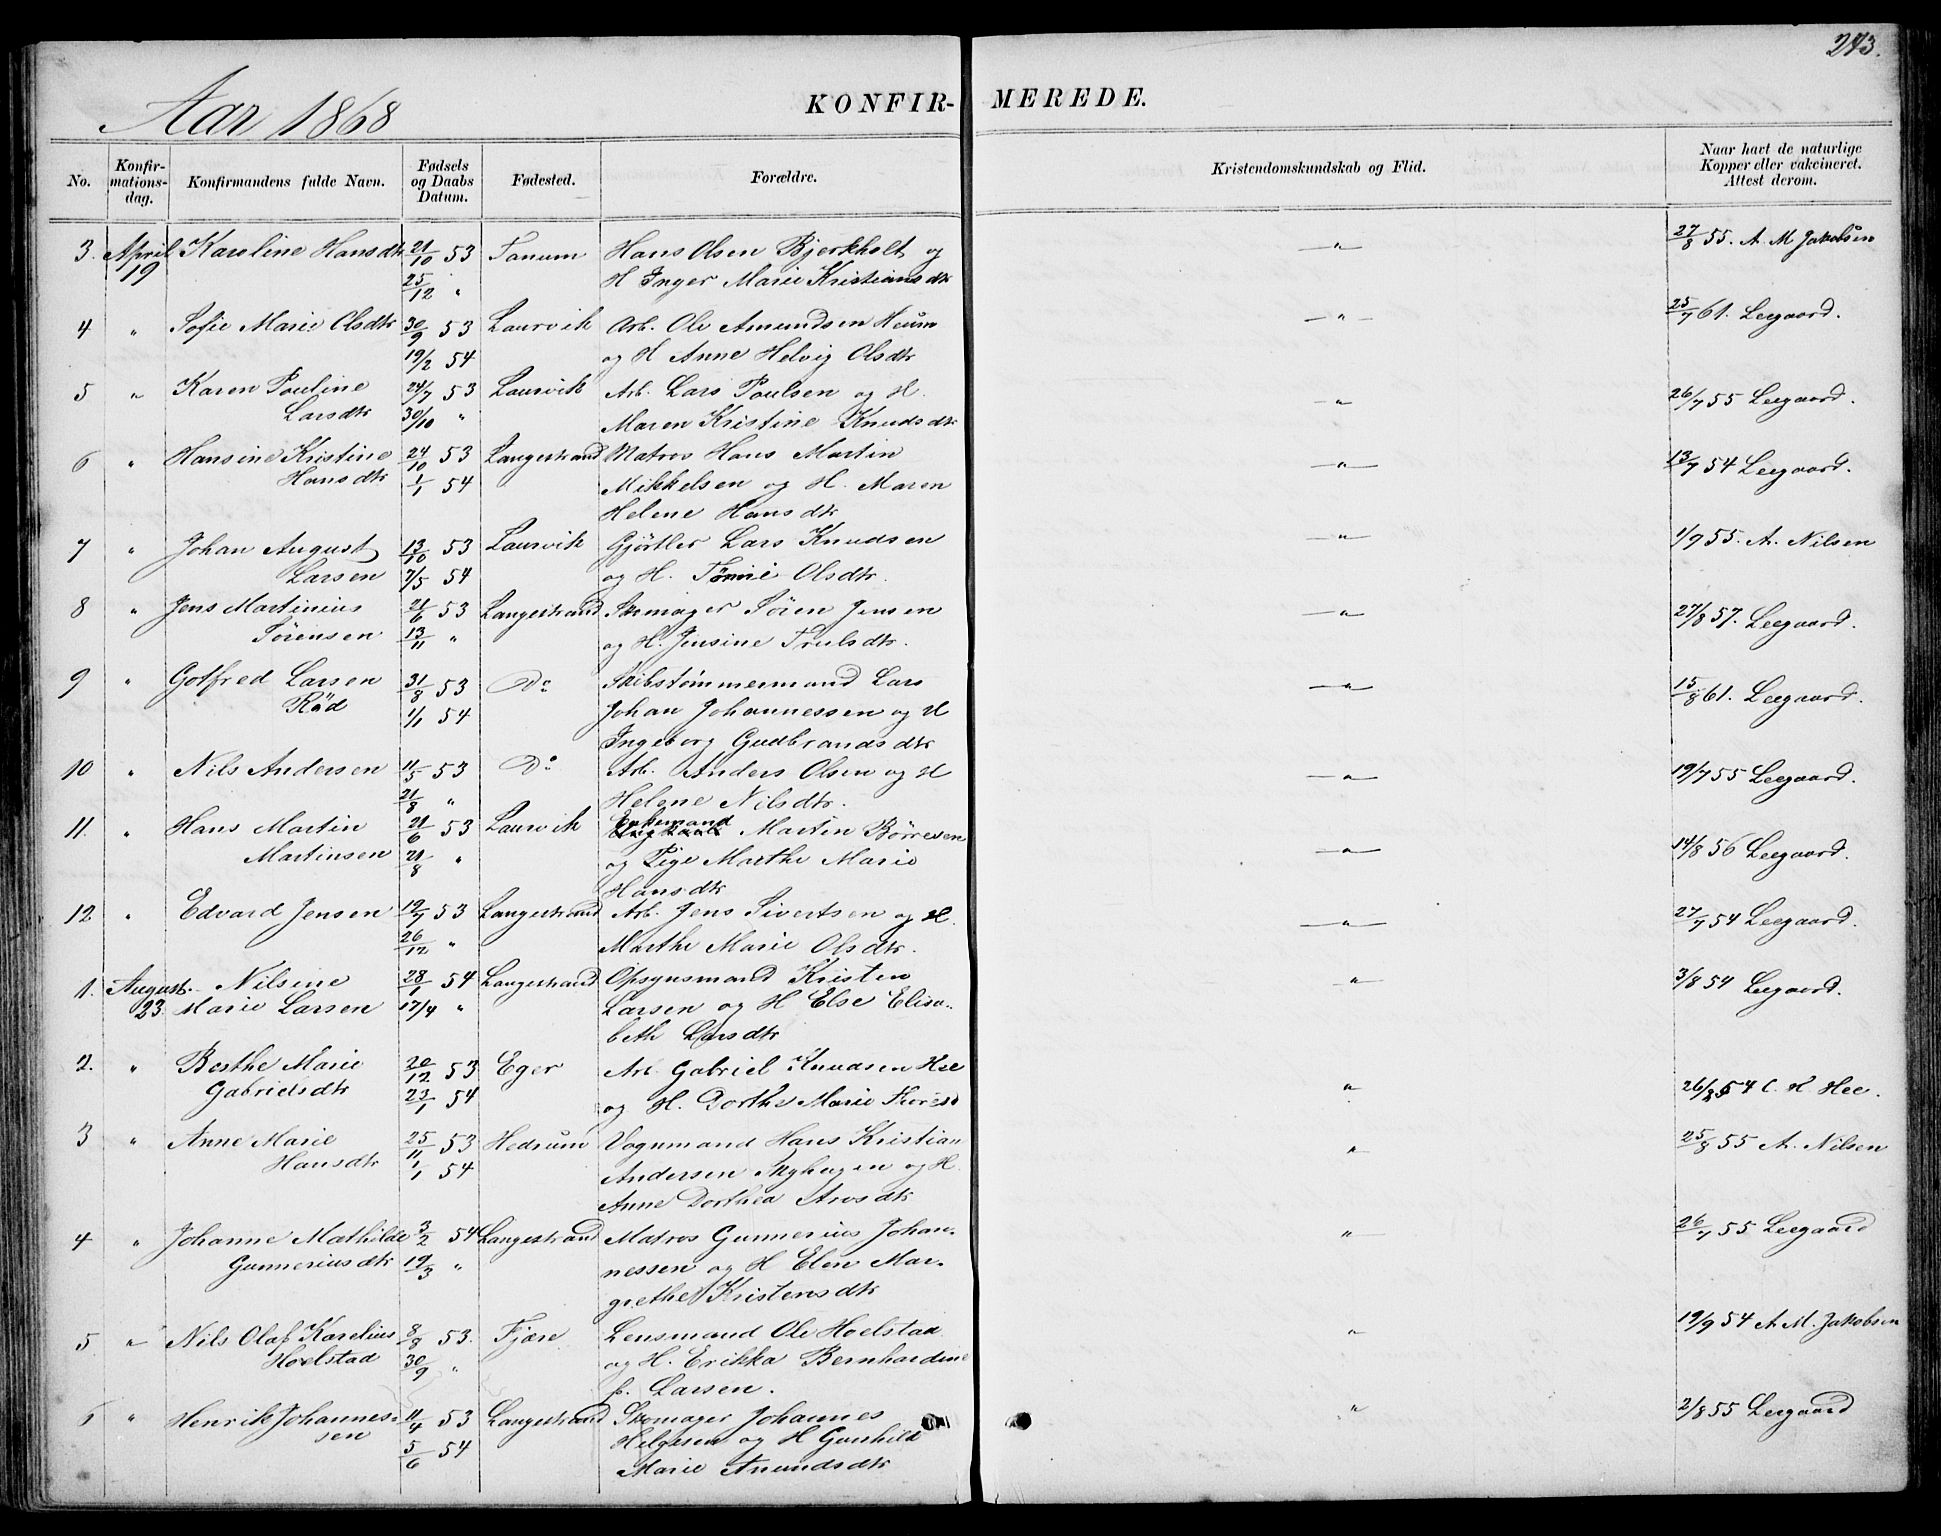 273.
Aar 1868
KONFIR- MEREDE.
No. Konfir-mations-dag. Konfirmandens fulde Navn. Fødsels og Daabs Datum. Fødested. Forældre. Kristendomskundskab og Flid. Naar havt de naturlige Kopper eller vakcineret. Attest derom.
3. April Karoline Hansdtr 21/10 53 Tanum Hans Olsen Bjerkholt og —"— 27/8 55. A. M Jakobsen
19 25/12 " H Inger Marie Kristiansdtr
4 " Sofie Marie Olsdtr 30/9 53 Laurvik Arb. Ole Amundsen Heum —"— 25/7 61. Leegaard.
19/2 54 og H Anne Helvig Olsdtr
5 " Karen Pauline 24/7 53 Laurvik Arb. Lars Poulsen og H. —"— 26/7 55 Leegaard.
Larsdtr 30/10 " Maren Kristine Knudsdtr
6 " Hansine Kristine 24/10 53 Langestrand Matros Hans Martin —"— 13/7 54 Leegaard.
Hansdtr 1/1 54 Mikkelsen og H. Maren
Helene Hansdtr
7 " Johan August 13/10 53 Laurvik Gjørtler Lars Knudsen —"— 1/9 55. A. Nilsen
Larsen 7/5 54 og H. Tømie Olsdtr.
8 " Jens Martinius 21/6 53 Langestrand Skomager Søren Jensen —"— 27/8 57. Leegaard.
Sørensen 13/11 " og H. Jensine Trulsdtr.
9 " Gotfred Larsen 31/8 53 Do Skibstømmermand Lars —"— 15/8 61. Leegaard.
Röd 1/1 54 Johan Johannessen og H
Ingeborg Gudbrandsdtr
10 " Nils Andersen 11/5 53 Do Arb. Anders Olsen og H —"— 19/7 55 Leegaard.
21/8 " Helene Nilsdtr.
11. " Hans Martin 21/6 53 Laurvik Enkemand Martin Børresen —"— 14/8 56 Leegaard.
Martinsen 21/8 " og Pige Marthe Marie
Hansdtr
12 " Edvard Jensen 12/7 53 Langestrand Arb. Jens Sivertsen og H. —"— 27/7 54 Leegaard.
26/12 " Marthe Marie Olsdtr.
1. August Nilsine 28/1 54 Langestrand Opsynsmand Kristen —"— 3/8 54 Leegaard.
23. Marie Larsen 17/4 " Larsen og H Else Elisa-
beth Larsdtr
2. " Berthe Marie 20/12 53 Eger Arb. Gabriel Knudsen Hee
Gabrielsdtr 23/1 54 og H. Dorthe Marie " 54 C. K Hee.
3 " Anne Marie 25/11 53 Hedrum Vognmand Hans Kristian " 25/8 55 A. Nilsen
Hansdtr 1/1 54 Andersen Myhagen og H.
Anne Dorthea Arosdtr
4 " Johanne Mathilde 3/2 54 Langestrand Matros Gunnerius Johan- "— 26/7 55 Leegaard
Gunneriusdtr 19/3 " nessen og H Elen Mar-
grethe Kristensdtr
5 " Nils Olaf Karelius 8/8 53. Fjære Lensmand Ole Hoelstad " 19/9 54 A. M. Jakobsen
Hoelstad 30/9 " og H. Erikka Bernhardine
f. Larsen.
6 " Henrik Johannes- 11/4 53 Langestrand Skomager Johannes " 2/8 55 Leegaard
sen 5/6 54 Helgesen og H Gunhild
Marie Anundsdtr